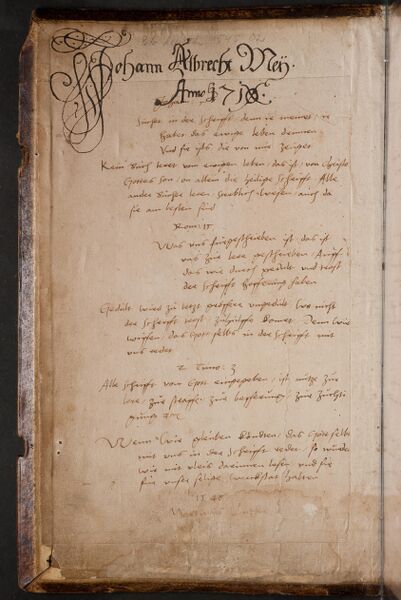 Johann Albrecht Mey.
Anno 1710.
Suchet in der schrifft, denn ir meinet, ir
habet das ewige leben drinnen
Und sie ists, die von mir zeuget
Kein buch leret vom ewigen leben, das ist, von Christo
Gottes son, on allein die heilige schrifft. Alle
ander bücher leren sterblich wesen, auch da
sie am besten sind
Rom: 15
Was uns furgeschrieben ist, das ist
uns zur lere geschrieben, Auff
das wir durch gedult und trost
der schrifft hoffnung haben
Gedult wird zu letzt grössere ungedult, wo nicht
der schrifft trost, zuhülffe komet. Denn wir
wissen, das Gott selbs in der schrifft mit
uns redet
2 Timo: 3
Alle schrifft von Gott eingegeben, ist nütze zur
lere, zur straffe, zur besserung, zur züchti
gung etc
Wenn wir gleuben köndten, das Gott selbs
mit uns in der schrifft redet, so würden
wir mit vleis darinnen lesen, und sie
für unser selige werckstat halten
Martinus Luther